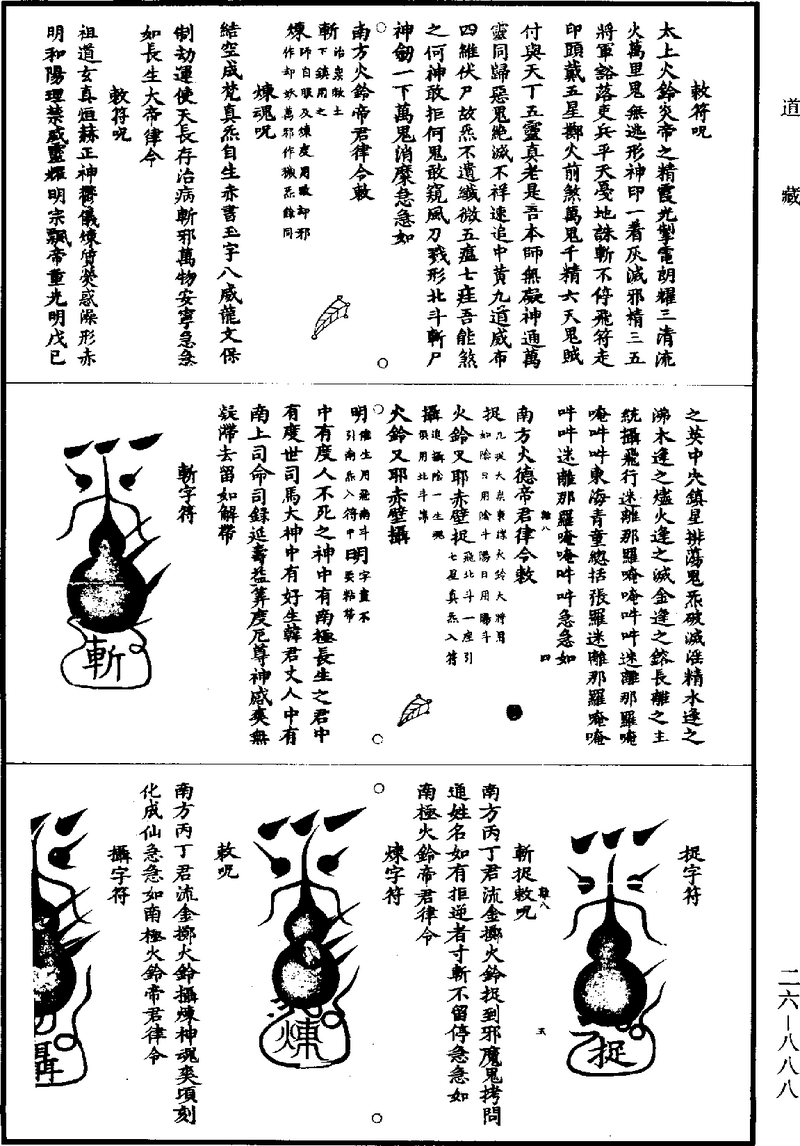 道藏
敕符呪
太上火鈴炎帝之精霞光掣電朗耀三清流
火萬里鬼無逃形神印一着灰滅邪精三五
將軍豁落吏兵平天憂地誅斬不停飛符走
印頭戴五星擲火前煞萬鬼千精六天鬼賊
付與天丁五靈真老是吾本師無礙神通萬
靈同歸惡鬼絕滅不祥速追中黄九道威布
四維伏尸故炁不遺纖微五瘟七疰吾能煞
之何神敢拒何鬼敢窺風刀戮形北斗斬尸
神劒一下萬鬼消糜急急如
南方火鈴帝君律令敕
斬治祟敕土下鎮用之
煉師自服及煉度用服却邪作却妖萬邪作獄炁餘同
煉魂呪
結空成梵真炁自生赤書玉字八威龍文保
制劫運使天長存治病斬邪萬物安寧急急
如長生大帝律令
敕符呪
祖道玄真烜赫正神鬱儀煉質熒惑澡形赤
明和陽理禁威靈耀明宗飄帝重光明戊已
之英中央鎮星排蕩鬼炁破滅淫精水逢之
沸木逢之燼火逢之滅金逢之鎔長離之主
統攝飛行迷離那羅唵唵吽吽迷離那羅唵
唵吽吽東海青童總括張羅迷離那羅唵唵
吽吽迷離那羅唵唵吽吽急急如
雖八 四
南方火德帝君律令敕
捉
如陰日用陰斗陽日用陽斗
火鈴叉耶赤壁捉飛北斗一座引七星真炁入符
攝追攝陰一生魂俱用北斗帝
火鈴叉耶赤壁攝
明
中有度人不死之神中有南極長生之君中
有度世司馬大神中有好生韓君丈人中有
南上司命司録延壽益算度厄尊神感奕無
疑滯去留如解帶
斬字符
斬
捉字符
捉
斬捉敕呪
雖八 五
南方丙丁君流金擲火鈴捉到邪魔鬼拷問
通姓名如有拒逆者寸斬不留停急急如
南極火鈴帝君律令
煉字符
煉
敕呪
南方丙丁君流金擲火鈴攝煉神魂奕頃刻
化成仙急急如南極火鈴帝君律令
攝字符
二六—八八八